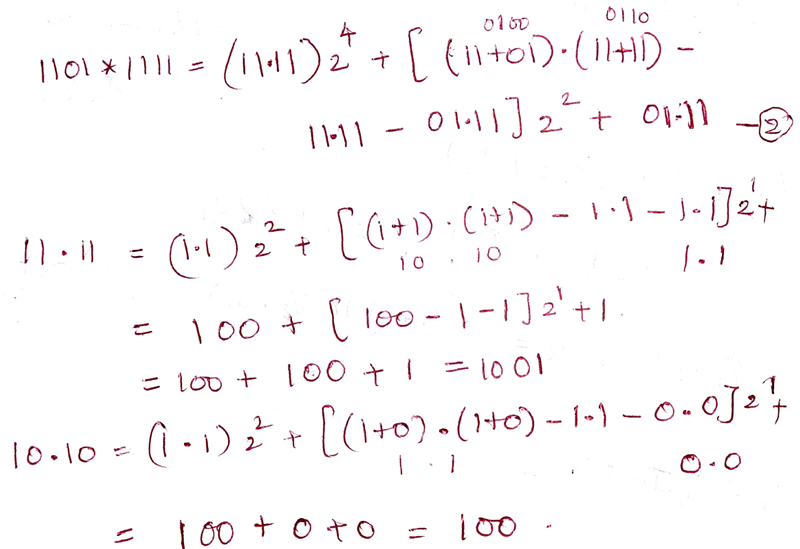 0100 0110
1101 * 1111 = (11·11) 2^4 + [ (11+01)·(11+11) −
11·11 − 01·11 ] 2^2 + 01·11 −②
11·11 = (1·1) 2^2 + [ (1+1)·(1+1) − 1·1 − 1·1 ] 2^1 +
10 · 10 1·1
= 100 + [ 100 − 1 − 1 ] 2^1 + 1.
= 100 + 100 + 1 = 1001
10·10 = (1·1) 2^2 + [ (1+0)·(1+0) − 1·1 − 0·0 ] 2^1 +
1 · 1 0·0
= 100 + 0 + 0 = 100 .